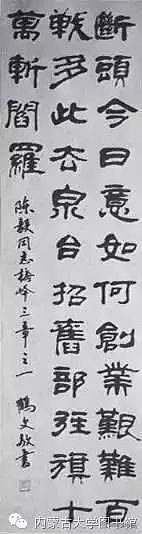 斷頭今日意如何創業艱難百
戰多此去泉台招舊部旌旗十
萬斬閻羅
陳毅同志梅岭三章之一 鶴文敬書
内蒙古大学图书馆